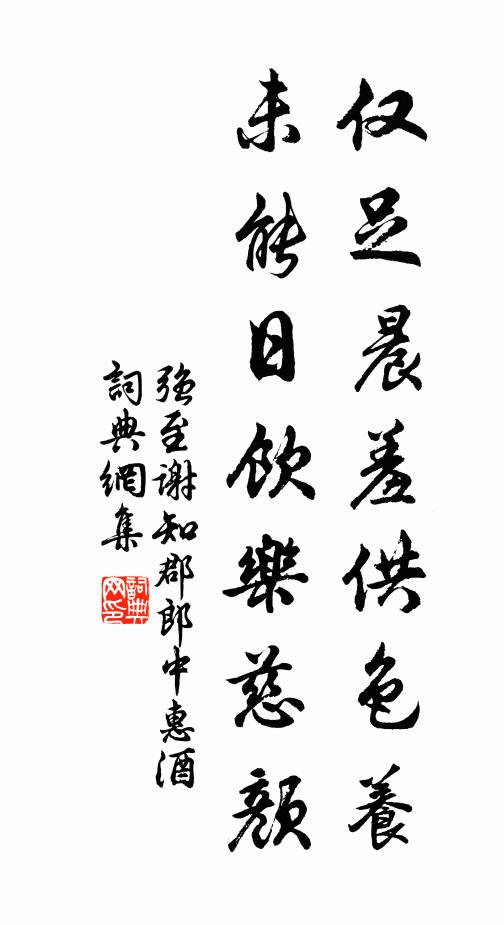 仅足晨羞供色養
未能日飲樂慈顏
強至謝知郡郎中惠酒
詞典網集
詞典網印